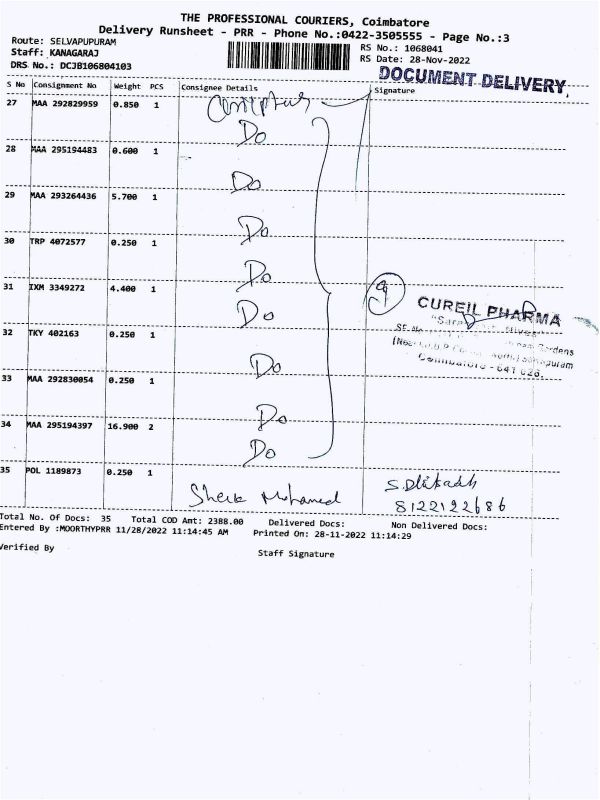 THE PROFESSIONAL COURIERS, Coimbatore
Delivery Runsheet - PRR - Phone No.:0422-3505555 - Page No.:3
Route: SELVAPUPURAM
RS No.: 1068041
Staff: KANAGARAJ
RS Date: 28-Nov-2022
DRS No.: DCJB106804103
DOCUMENT DELIVERY
S No Consignment No Weight PCS Consignee Details Signature
27 MAA 292829959 0.850 1
Do
28 MAA 295194483 0.600 1
Do
29 MAA 293264436 5.700 1
Do
30 TRP 4072577 0.250 1
Do
31 IXM 3349272 4.400 1
Do
9
CUREIL PHARMA
32 TKY 402163 0.250 1
Do
Coimbatore - 641 026.
33 MAA 292830054 0.250 1
Do
34 MAA 295194397 16.900 2
Do
35 POL 1189873 0.250 1
Sheik Mohamed
8122122686
Total No. Of Docs: 35 Total COD Amt: 2388.00 Delivered Docs: Non Delivered Docs:
Entered By :MOORTHYPRR 11/28/2022 11:14:45 AM Printed On: 28-11-2022 11:14:29
Verified By
Staff Signature